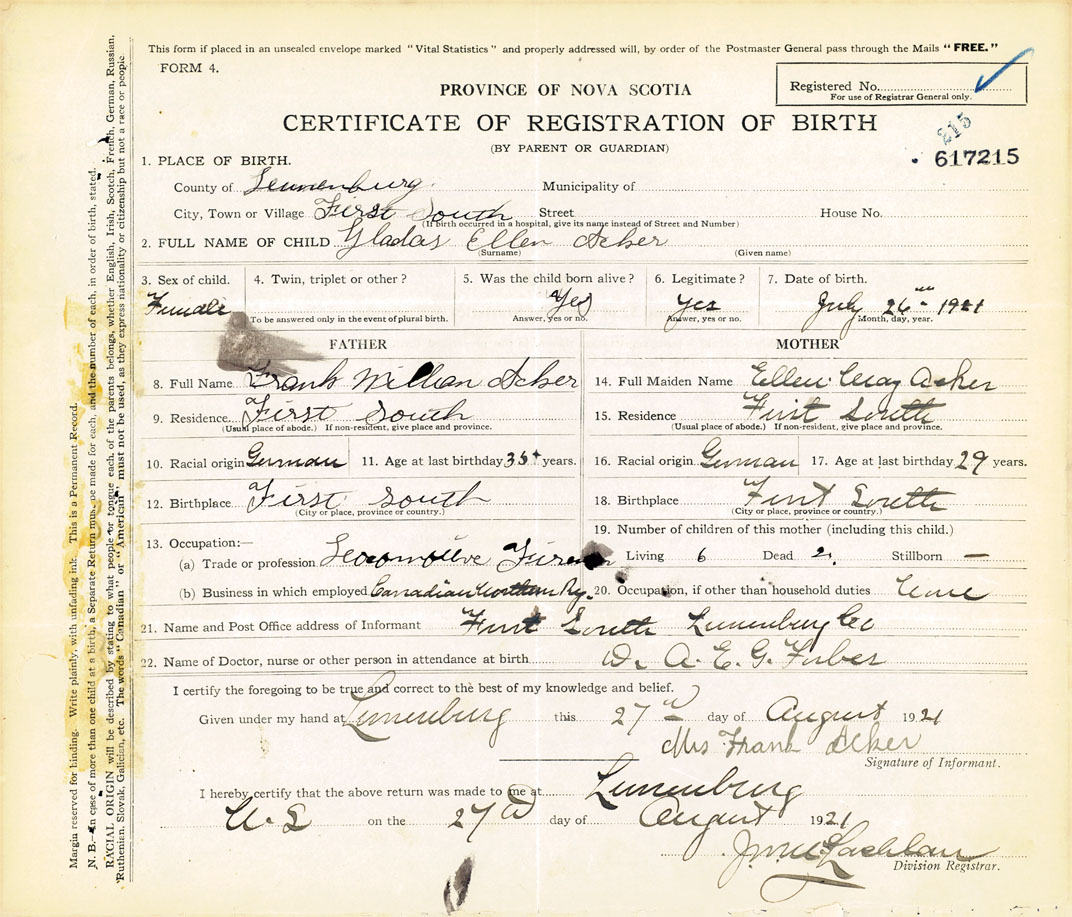 This form if placed in an unsealed envelope marked "Vital Statistics" and properly addressed will, by order of the Postmaster General pass through the Mails "FREE."
FORM 4.
Registered No.
For use of Registrar General only.
PROVINCE OF NOVA SCOTIA
CERTIFICATE OF REGISTRATION OF BIRTH
(BY PARENT OR GUARDIAN)
215
617215
1. PLACE OF BIRTH.
County of Lunenburg Municipality of
City, Town or Village First South Street House No.
(If birth occurred in a hospital, give its name instead of Street and Number)
2. FULL NAME OF CHILD Gladas Ellen Acker
(Surname) (Given name)
3. Sex of child. 4. Twin, triplet or other? 5. Was the child born alive? 6. Legitimate? 7. Date of birth.
Female Yes Yes July 26th 1921
To be answered only in the event of plural birth. Answer, yes or no. Answer, yes or no. Month, day, year.
FATHER
8. Full Name Frank William Acker
9. Residence First South
(Usual place of abode.) If non-resident, give place and province.
10. Racial origin German 11. Age at last birthday 35 years.
12. Birthplace First South
(City or place, province or country.)
13. Occupation:—
(a) Trade or profession Locomotive Fireman
(b) Business in which employed Canadian Northern Ry.
MOTHER
14. Full Maiden Name Ellen May Acker
15. Residence First South
(Usual place of abode.) If non-resident, give place and province.
16. Racial origin German 17. Age at last birthday 29 years.
18. Birthplace First South
(City or place, province or country.)
19. Number of children of this mother (including this child.)
Living 6 Dead 2. Stillborn —
20. Occupation, if other than household duties
21. Name and Post Office address of Informant First South Lunenburg Co
22. Name of Doctor, nurse or other person in attendance at birth Dr A. E. G. Forbes
I certify the foregoing to be true and correct to the best of my knowledge and belief.
Given under my hand at Lunenburg this 27th day of August 1921
Mrs Frank Acker
Signature of Informant.
I hereby certify that the above return was made to me at Lunenburg
N.S. on the 27th day of August 1921
Lachlan
Division Registrar.
Margin reserved for binding. Write plainly, with unfading ink. This is a Permanent Record.
N. B.—In case of more than one child at a birth, a Separate Return must be made for each, and the number of each, in order of birth, stated.
RACIAL ORIGIN will be described by stating to what people or tongue each of the parents belongs, whether English, Irish, Scotch, French, German, Russian,
Ruthenian, Slovak, Galician, etc. The words "Canadian" or "American" must not be used, as they express nationality or citizenship but not a race or people